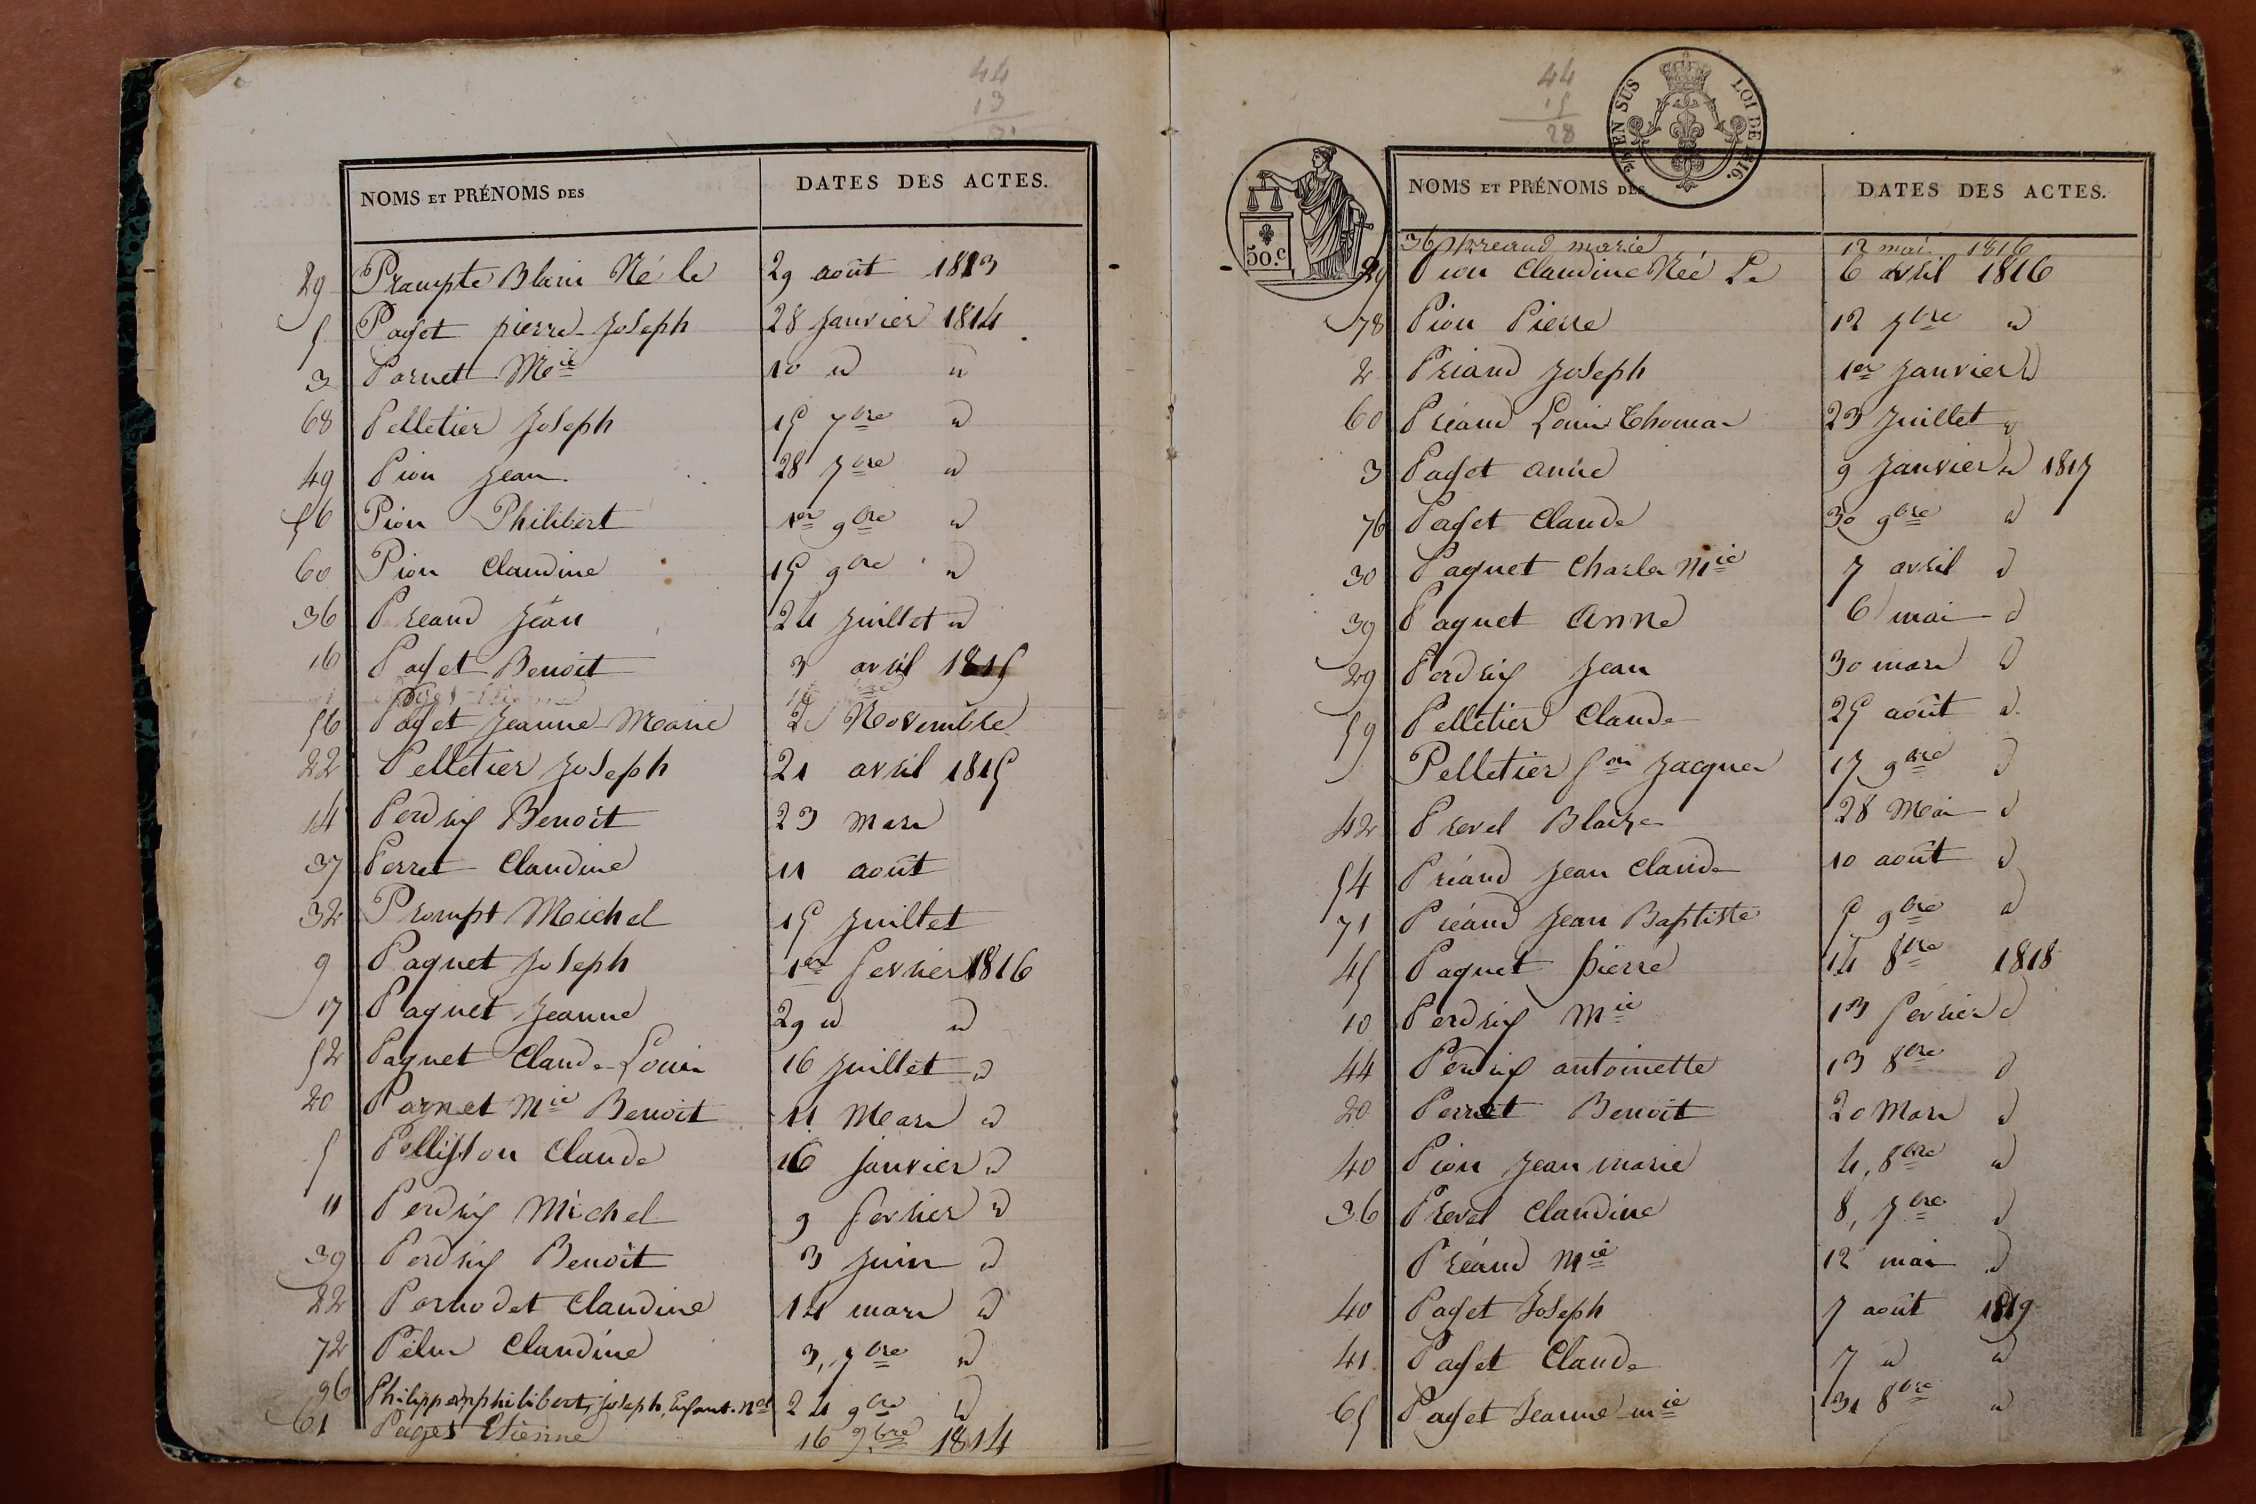 44
13
NOMS ET PRÉNOMS DES DATES DES ACTES.
29 Prompte Blaise Né le 29 août 1813
5 Paget pierre Joseph 28 Janvier 1814
3 Pornet Mie 10 d d
68 Pelletier Joseph 15 7bre d
49 Pion Jean 28 7bre d
56 Pion Philibert 1er 9bre d
60 Pion Claudine 15 9bre d
36 Preaud Jean 24 Juillet d
16 Paget Benoit 3 avril 1815
56 Paget Jeanne Marie 2 Novembre
22 Pelletier Joseph 21 avril 1815
14 Perdrix Benoit 23 Mars
37 Perret Claudine 11 août
32 Prompt Michel 15 Juillet
9 Paquet Joseph 1er fevrier 1816
17 Paquet Jeanne 29 d d
52 Paquet Claude Louis 16 Juillet d
20 Pornet Mie Benoit 11 Mars d
5 Pellisson Claude 16 janvier d
11 Perdrix Michel 9 fevrier d
39 Perdrix Benoit 3 Juin d
22 Pernodet Claudine 14 mars d
72 Claudine 3, 7bre d
96 philibert, joseph, Enfant. Nel 24 9bre d
61 Pages Etienne 16 9bre 1814
44
15
28
EN SUS LOI DE 1816.
50.c
NOMS ET PRÉNOMS DES DATES DES ACTES.
36 Preaud marie 12 mai 1816
29 Pion Claudine Née Le 6 avril 1816
78 Pion Pierre 12 7bre d
2 Priaud Joseph 1er Janvier d
60 Préaud Louis Thomas 23 Juillet d
3 Paget anne 9 Janvier d 1817
76 Paget Claude 30 9bre d
30 Paquet Charle Mie 7 avril d
39 Paquet Anne 6 mai d
29 Perdrix Jean 30 mars d
59 Pelletier Claude 25 août d
Pelletier fois Jacques 17 9bre d
42 Prevel Blaize 28 Mai d
54 Préaud Jean Claude 10 août d
71 Préaud Jean Baptiste 5 9bre d
45 Paquet pierre 14 8bre 1818
10 Perdrix Mie 13 fevrier d
44 Perdrix antoinette 13 8bre d
20 Perret Benoit 20 Mars d
40 Pion Jean marie 4, 8bre d
36 Prevel Claudine 8, 7bre d
Préaud Mie 12 mai d
40 Paget Joseph 7 août 1819
41 Paget Claude 7 d d
65 Paget Jeanne mie 31 8bre d